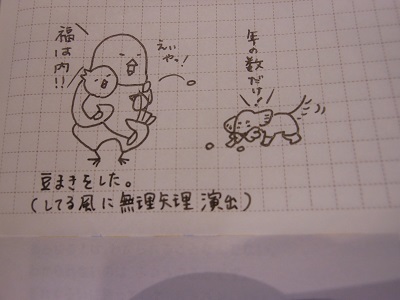 福は内!!
えいやっ!
年の数だけ!
豆まきをした。
(してる風に無理矢理演出)